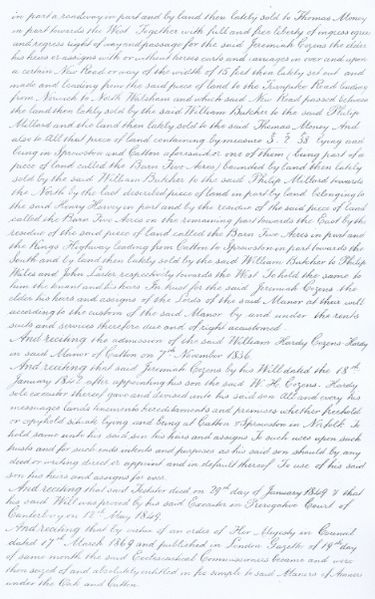 in part a roadway in part and by land then lately sold to Thomas Money
in part towards the West Together with full and free liberty of ingress egress
and regress right of way and passage for the said Jeremiah Cozens the elder
his heirs or assigns with or without horses carts and carriages in over and upon
a certain New Road or way of the width of 15 feet then lately set out and
made and leading from the said piece of land to the Turnpike Road leading
from Norwich to North Walsham and which said New Road passed between
the land then lately sold by the said William Butcher to the said Philip
Millard and the land then lately sold to the said Thomas Money And
also to All that piece of land containing by measure 3. 2. 38 lying and
being in Sprowston and Catton aforesaid or one of them (being part of a
piece of land called the Barn Five Acres) bounded by land then lately
sold by the said William Butcher to the said Philip Millard towards
the North by the last described piece of land in part by land belonging to
the said Henry Harvey in part and by the residue of the said piece of land
called the Barn Five Acres on the remaining part towards the East by the
residue of the said piece of land called the Barn Five Acres in part and
the Kings Highway leading from Catton to Sprowston in part towards the
South and by land then lately sold by the said William Butcher to Philip
Wiles and John Lester respectively towards the West To hold the same to
him the tenant and his heirs In trust for the said Jeremiah Cozens the
elder his heirs and assigns of the Lords of the said Manor at their will
according to the custom of the said Manor by and under the rents
suits and services therefore due and of right accustomed
And reciting the admission of the said William Hardy Cozens-Hardy
in said Manor of Catton on 7th November 1836
And reciting that said Jeremiah Cozens by his Will dated the 18th
January 1847 after appointing his son the said W. H. Cozens-Hardy
sole executor thereof gave and devised unto his said son All and every his
messuages lands tenements hereditaments and premises whether freehold
or copyhold situate lying and being at Catton & Sprowston in Norfolk To
hold same unto his said son his heirs and assigns To such uses upon such
trusts and for such ends intents and purposes as his said son should by any
deed or writing direct or appoint and in default thereof To use of his said
son his heirs and assigns for ever
And reciting that said Testator died on 29th day of January 1849 & that
his said Will was proved by his said Executor in Prerogative Court of
Canterbury on 12th May 1849
And reciting that by virtue of an order of Her Majesty in Council
dated 17th March 1869 and published in London Gazette of 19th day
of same month the said Ecclesiastical Commissioners became and were
then seized of and absolutely entitled in fee simple to said Manors of Manors
under the Oak and Catton